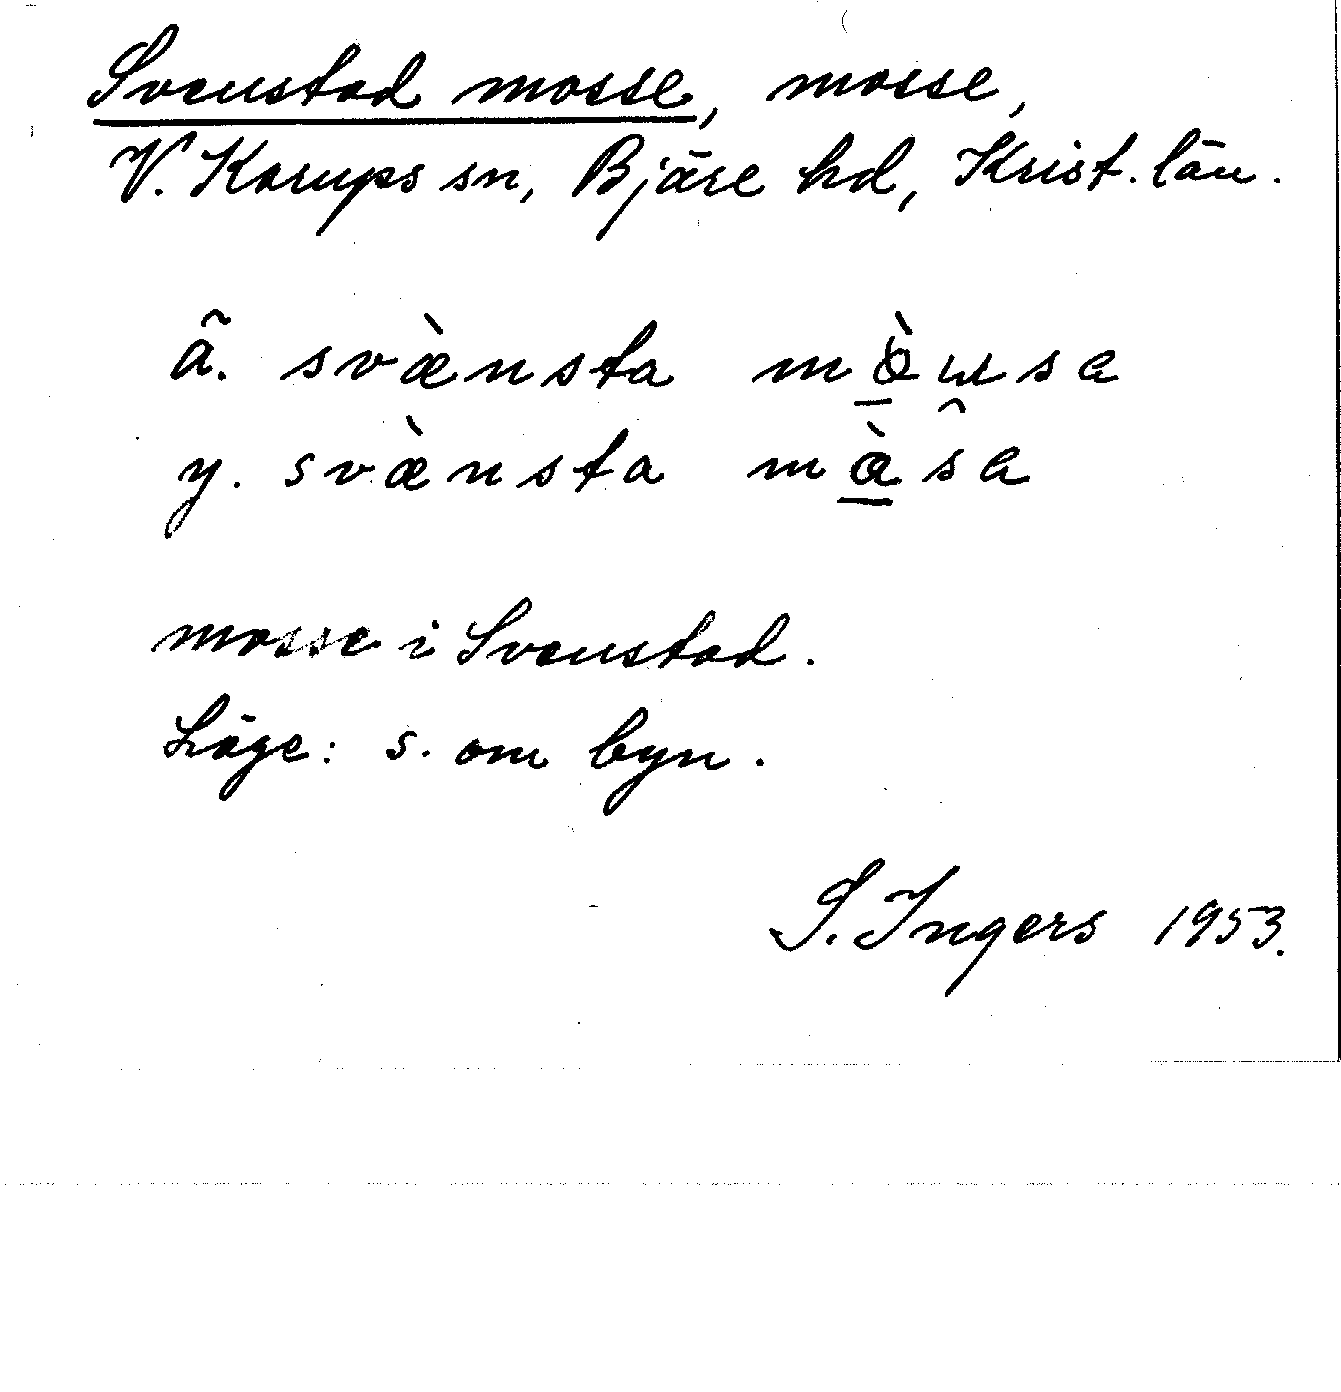 Svenstad mosse, mosse,
V. Karups sn, Bjäre hd, Krist. län.
ã. svæ̀nsta
y. svæ̀nsta
mosse i Svenstad.
Läge: s. om byn.
S. Ingers 1953.